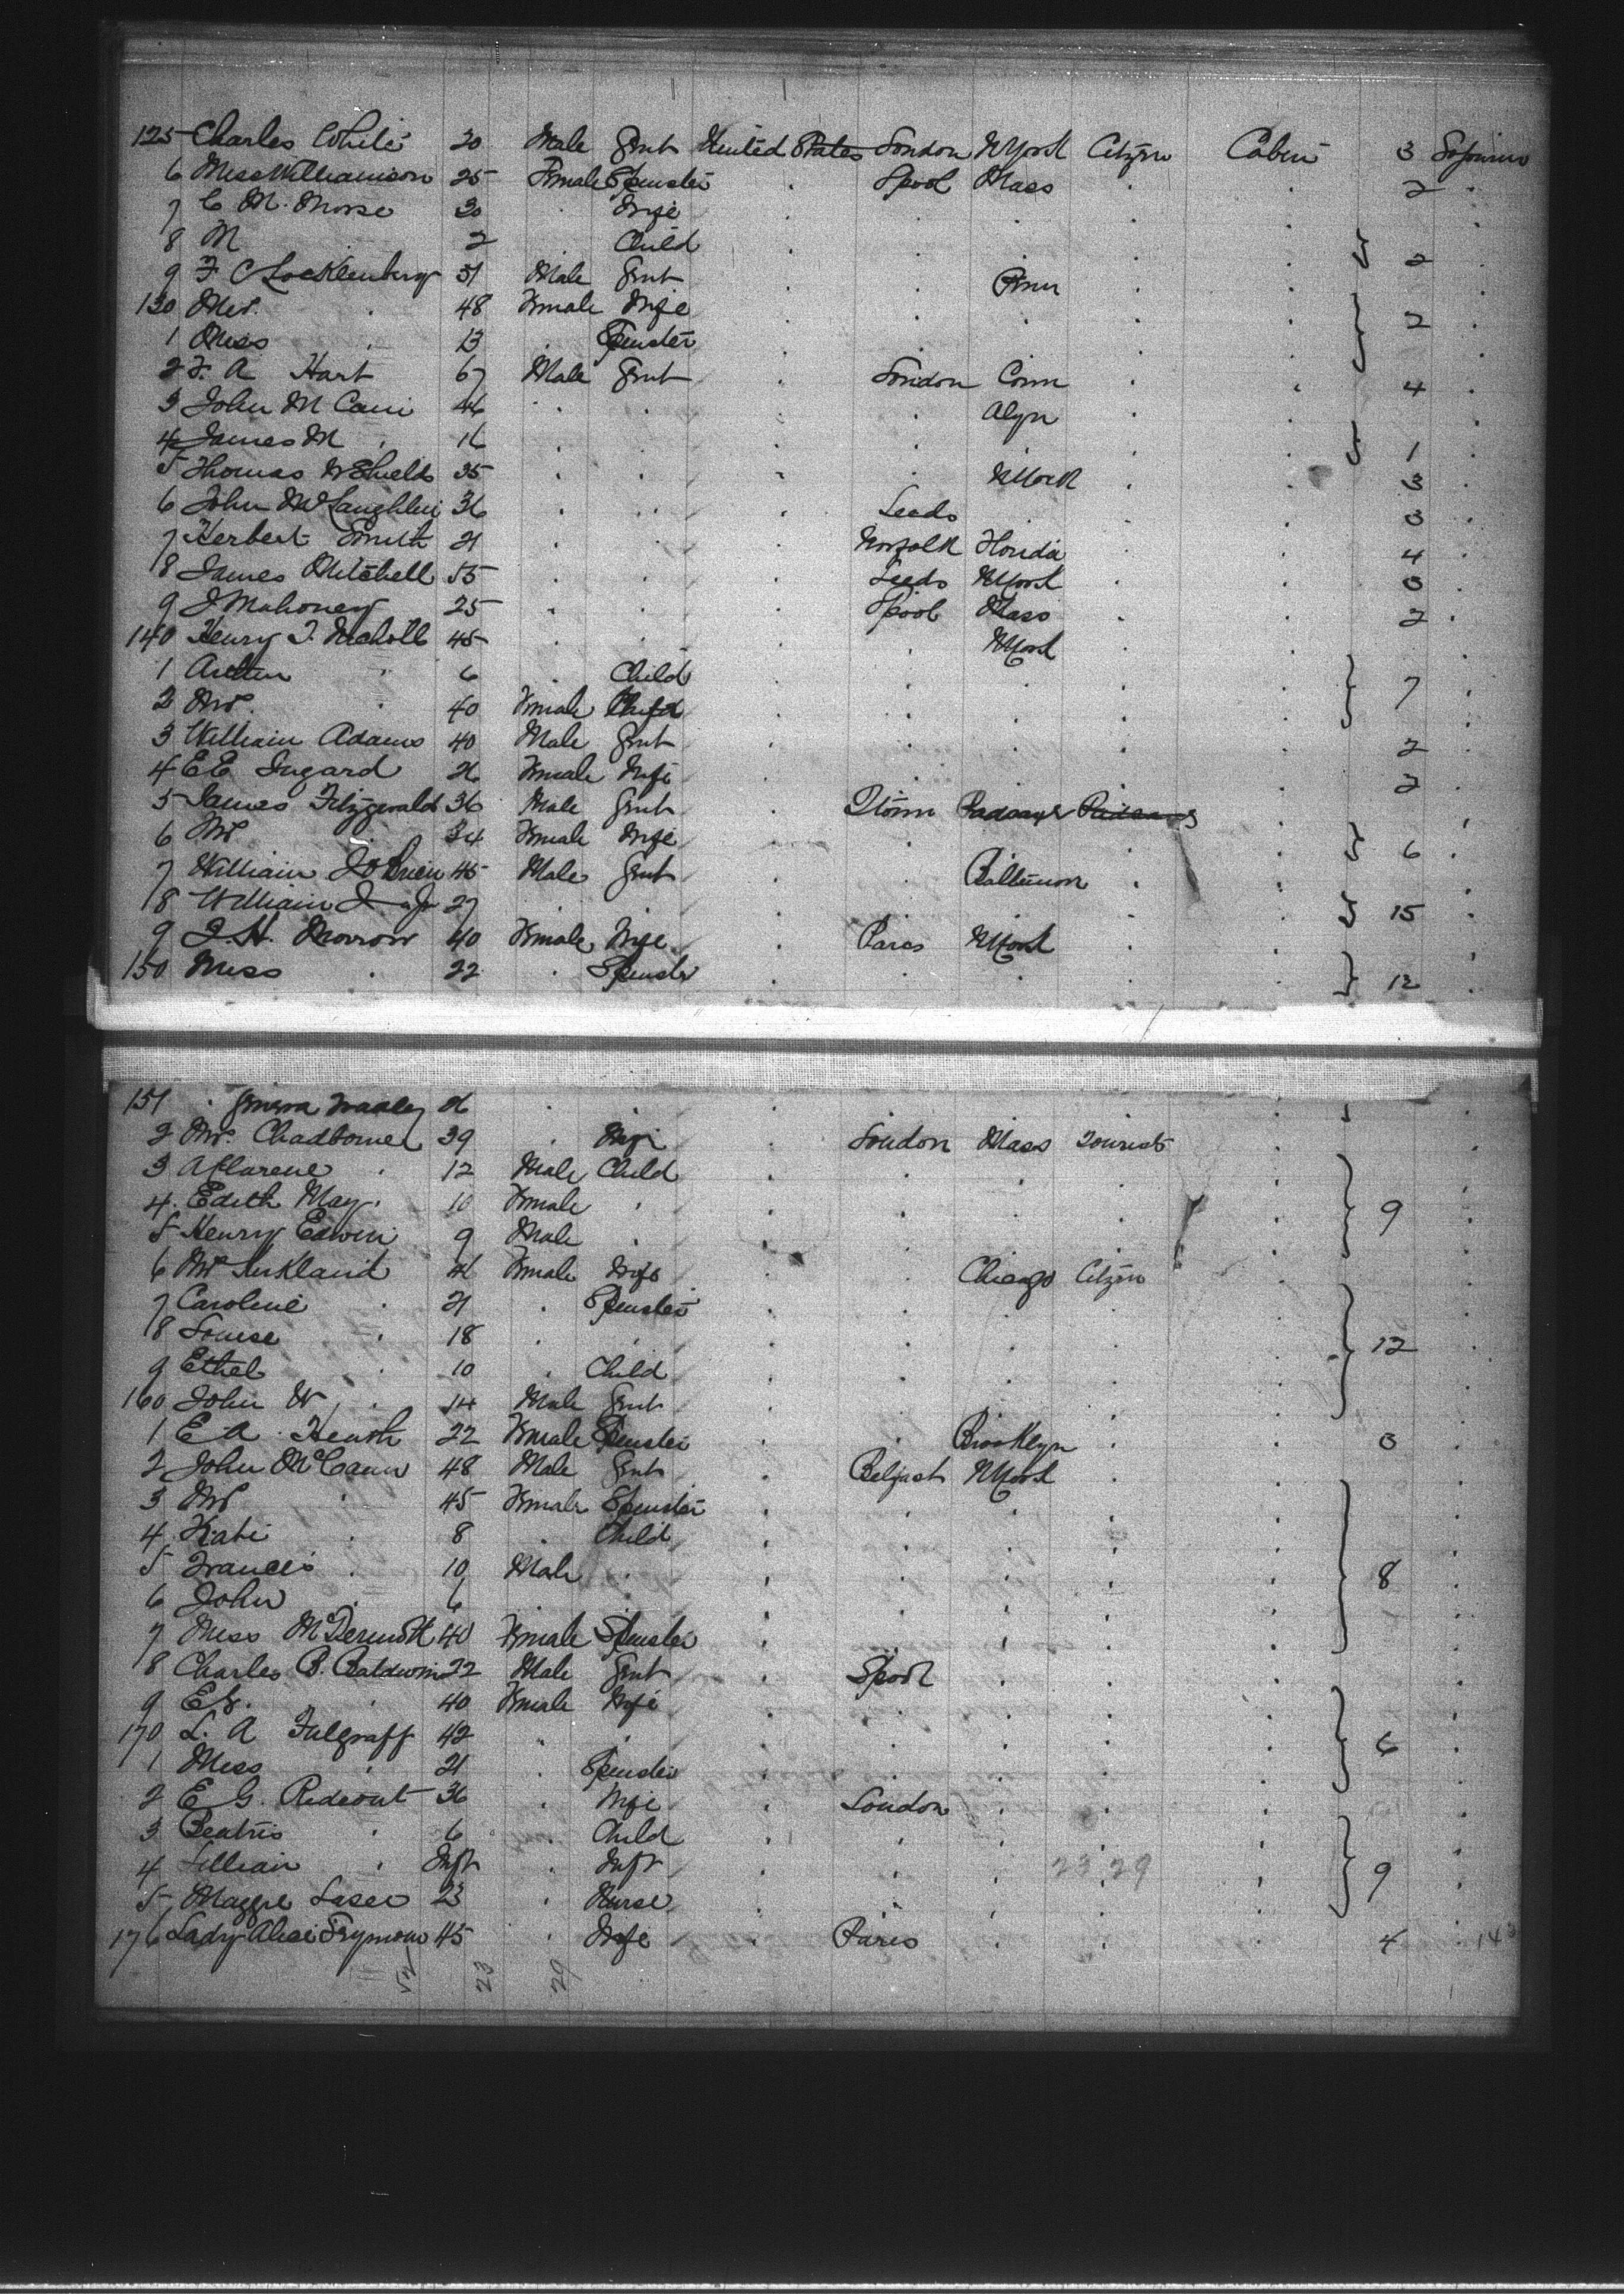 125 Charles White 20 Male Gent United States London N York Citizen Cabin 3 Sojourn
6 Miss Williamson 25 Female Spinster . Lpool Mass . . 2 .
7 C M. Morse 30 . Wife . . . . .
8 M 2 . Child . . . . . 2 .
9 F C 51 Male Gent . . Penn . . .
130 Mrs. . 48 Female Wife . . . . . 2 .
1 Miss . 13 . Spinster . . . . .
2 F. A Hart 67 Male Gent . London Conn . . 4 .
3 John M Cain 46 . . . . . . .
4 James M . 16 . . . . . . . 1 .
5 Thomas W Shields 35 . . . . N York . . 3 .
6 John McLaughlin 36 . . . Leeds . . . 3 .
7 Herbert Smith 21 . . . Norfolk Florida . . 4 .
8 James Mitchell 55 . . . Leeds N York . . 3 .
9 J Mahoney 25 . . . Lpool Mass . . 2 .
140 Henry T. Nicholl 45 . . . . N York . . .
1 . 6 . Child . . . . . 7 .
2 Mrs. . 40 Female . . . . . .
3 William Adams 40 Male Gent . . . . . 2 .
4 E E 26 Female Wife . . . . . 2 .
5 James Fitzgerald 36 Male Gent . . .
6 Mrs . 34 Female Wife . . . . . 6 .
7 William J O'Brien 45 Male Gent . . Baltimore . . .
8 William J " Jr 27 . . . . . . . 15 .
9 J. H. Morrow 40 Female Wife . Paris N York . . .
150 Miss . 22 . Spinster . . . . . 12 .
151 . 26 . . . . . . . .
2 Mrs. Chadbourne 39 . Wife . London Mass Tourist . .
3 A Clarence . 12 Male Child . . . . . .
4 Edith May . 10 Female . . . . . . 9 .
5 Henry Edwin 9 Male . . . . . . .
6 Mrs Kirkland 46 Female Wife . Chicago Citizen . .
7 Caroline . 21 . Spinster . . . . . .
8 Louise . 18 . . . . . . . 12 .
9 Ethel . 10 . Child . . . . . .
160 John W . 14 Male Gent . . . . . .
1 E A 22 Female Spinster . . Brooklyn . . 3 .
2 John McCann 48 Male Gent . Belfast N York . . .
3 Mrs . 45 Female Spinster . . . . . .
4 Katie . 8 . Child . . . . . .
5 Francis . 10 Male . . . . . . 8 .
6 John . 6 . . . . . . . .
7 Miss McDermott 40 Female Spinster . . . . . .
8 Charles B. Baldwin 22 Male Gent . Lpool . . . .
9 E G. . 40 Female Wife . . . . . .
170 L. A Fulgraff 42 . . . . . . . 6 .
1 Miss . 21 . Spinster . . . . . .
2 E G. Rideout 36 . Wife . London . . . .
3 Beatris . 6 . Child . . . . . .
4 Lillian . Inft . Inft . . . 23 29 . 9 .
5 Maggie 23 . Nurse . . . . . .
176 Lady Alice 45 . Wife . Paris . . . 4 .
52 23 29